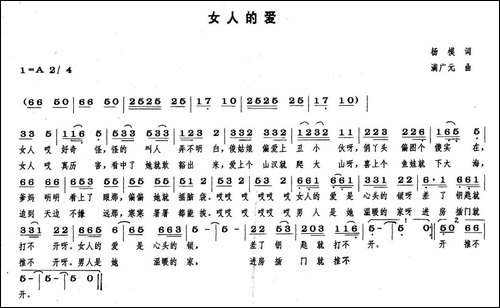 女人的爱
杨楔 词
满广元 曲
1=A 2/4
(66 50 | 66 50 | 2525 25 | 17 10 | 2525 25 | 17 10)
33 5 | 116 5 | 533 533 | 53 32 | 332 112 | 1232 11 | 223 226 | 165 5
女人 哎 好奇 怪，怪的 叫人 弄不明 白，俊姑娘 偏爱上 丑小 伙呀，俏丫头 偏图个 傻实 在，
女人 哎 真厉 害，看中了 她就敢 豁出 来，爱上个 山汉就 爬大 山呀，喜上个 鱼娃就 下大 海，
66 66 | 653 55 | 553 553 | 51 2 | 53 2 | 53 2 | 661 223 | 116 66
爹妈 明明 看上了 眼那，偏偏 她就 插脑 袋，哎哎 哎 哎哎 哎 女人的 爱是 心头的 锁呀 差了 钥匙就
追到 天边 不嫌 远那，寒寒 署署 都能 挨，哎哎 哎 哎哎 哎 男人 是她 温暖的 家呀 进房 插门就
打不 开呀，女人的 爱 是 心头的 锁， 差了 钥 匙 就 打不 开。 开
推不 开呀，男人是 她 温暖的 家， 进 房 插 门 就 推不
开。